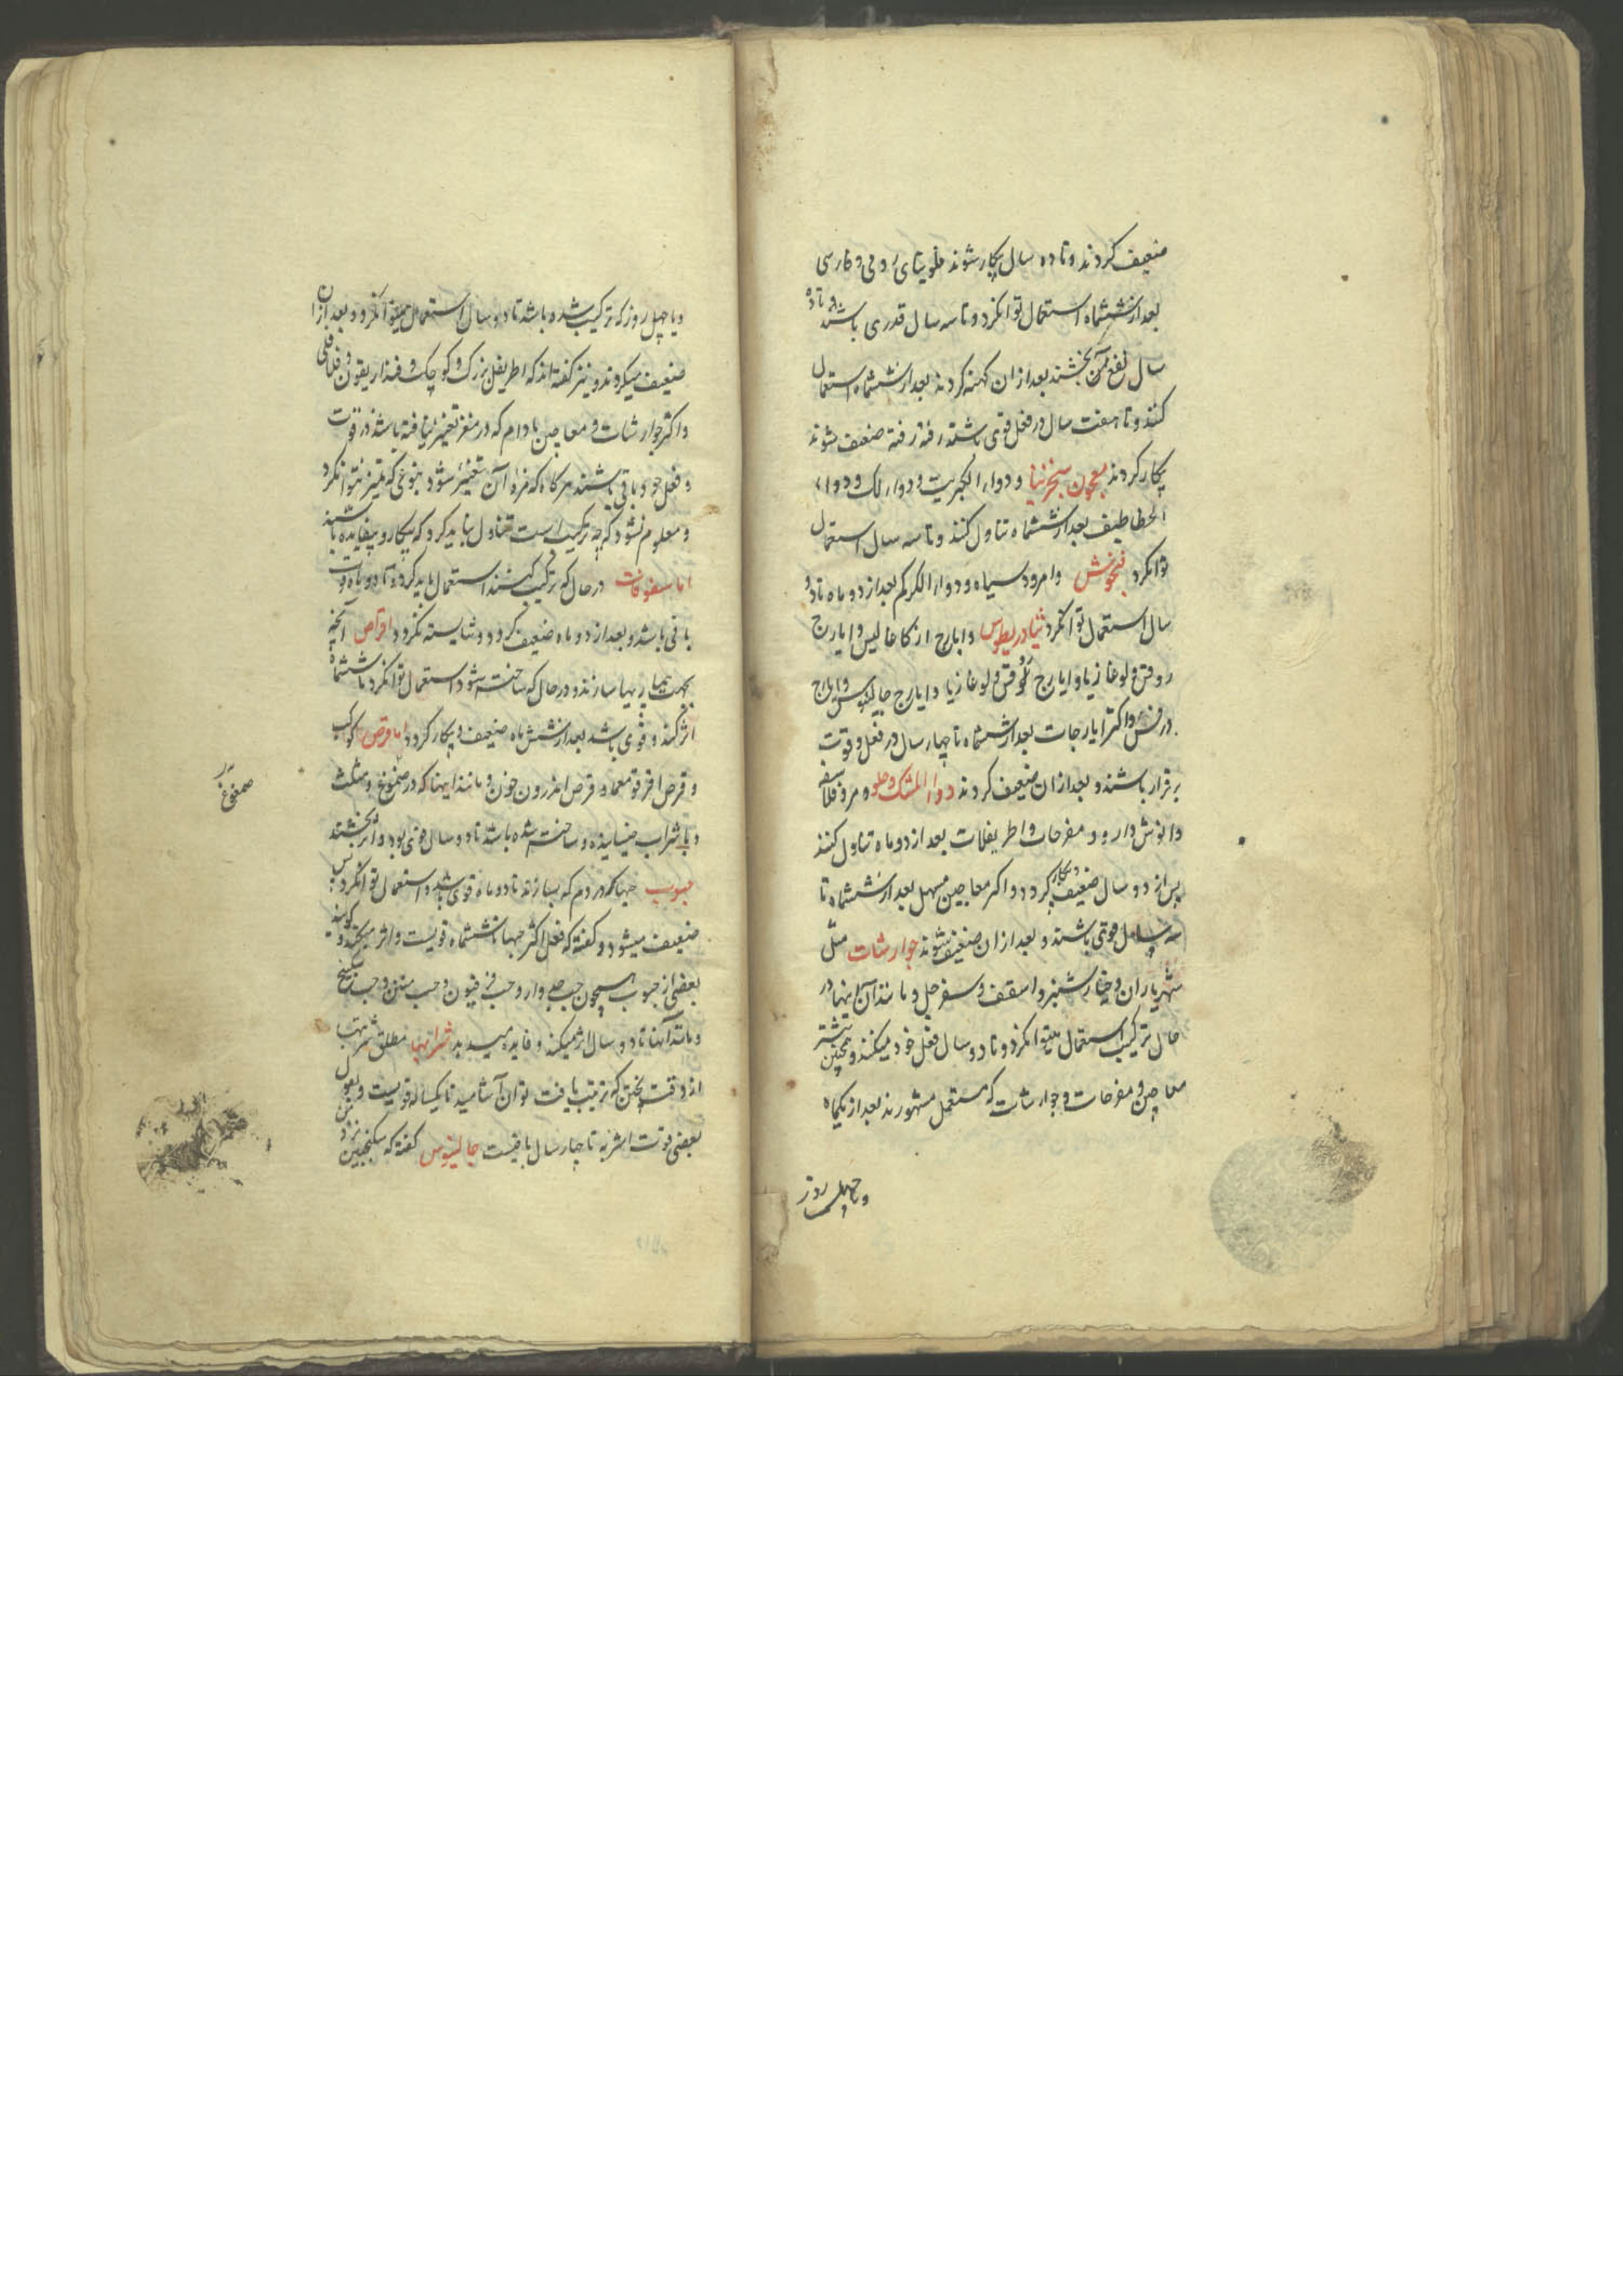 ضعیف کردند و تا ده سال بیکار شوند فلونیای رومی و فارسی
بعد از ششماه استعمال توانکرد و تا سه سال قدری باشد و تا ده
سال نفع بخشند بعد از ان کهنه کردند بعد از ششماه استعمال
کنند و تا هفت سال در فعل قوی باشند رفته رفته ضعیف شوند
بیکار کردند معجون سجزنیا و دواء الکبریت و دواء لک و دواء
الخطاطیف بعد از ششماه تناول کنند و تا سه سال استعمال
توانکرد فنجنوش وامروسیاه و دواء الکرکم بعد از دو ماه تا دو
سال استعمال توانکرد ثیادریطوس وایارج ارکاغالیس وایارج
روفس ولوغازیا وایارج ولوغازیا وایارج جالینوس وایارج
واکثر ایارجات بعد از ششماه تا چهار سال در فعل و قوت
برقرار باشند و بعد از ان ضعیف کردند دواء المسک حلو و مر و فلاسفه
وانوش دارو و مفرحات واطریفلات بعد از دو ماه تناول کنند
پس از دو سال ضعیف و بیکار کردد واکثر معاجین مسهل بعد از ششماه تا
سه سال قوتی باشند و بعد از ان ضعیف شوند جوارشات مثل
شهریاران واسقف وسفرجل و مانند آن اینها در
حال ترکیب استعمال میتوانکرد و تا دو سال فعل خود میکنند و همچنین بیشتر
معاجین و مفرحات و جوارشات که مستعمل مشهورند بعد از یکماه
و یا چهل روز
و یا چهل روز که ترکیب شده باشد تا دو سال استعمال میتوانکرد و بعد از ان
ضعیف میکردند و نیز کفته اند که اطریفل بزرک و کوچک و فنداریقون و فلافلی
واکثر جوارشات و معاجین مادام که در مغز تغییر نیافته باشد در قوت
و فعل خود باقی باشند هر کاه که مزه آن متغیر شود بنوعی که تمیز نتوانکرد
و معلوم نشود که چه ترکیب است تناول نباید کرد که بیکار و بیفایده باشند
اما سفوفات در حال که ترکیب کنند استعمال باید کرد و تا دو ماه قوت
باقی باشد و بعد از دو ماه ضعیف کردد و شایسته نکردد اقراص آنچه
بجهت تبها سازند در حال که ساخته شود استعمال توانکرد تا ششماه
اثر کند و قوی باشد بعد از شش ماه ضعیف و بیکار کردد اما قرص کوکب
و قرص و قرص اندرون خون و مانند اینها که در صمغ و مثلث
و یا شراب خیسانیده و ساخته شده باشد تا دو سال قوی بود و اثر بخشند
حبوب حبها که در دم که بسازند تا دو ماه قوی باشد و استعمال توانکرد پس
ضعیف میشود و کفته که فعل اکثر حبها تا ششماه قویست و اثر میبخشد و کویند
بعضی از حبوب همچون حب و حب و حب منتن و حب سکبینج
و مانند آنها تا دو سال اثر میکند و فایده میدهد شرابها مطلق شربت
از وقت پختن که ترتیب یافت توان آشامید تا یکساله قویست و بقول
بعضی قوت اشربه تا چهار سال باقیست جالینوس کفته که سکنجبین